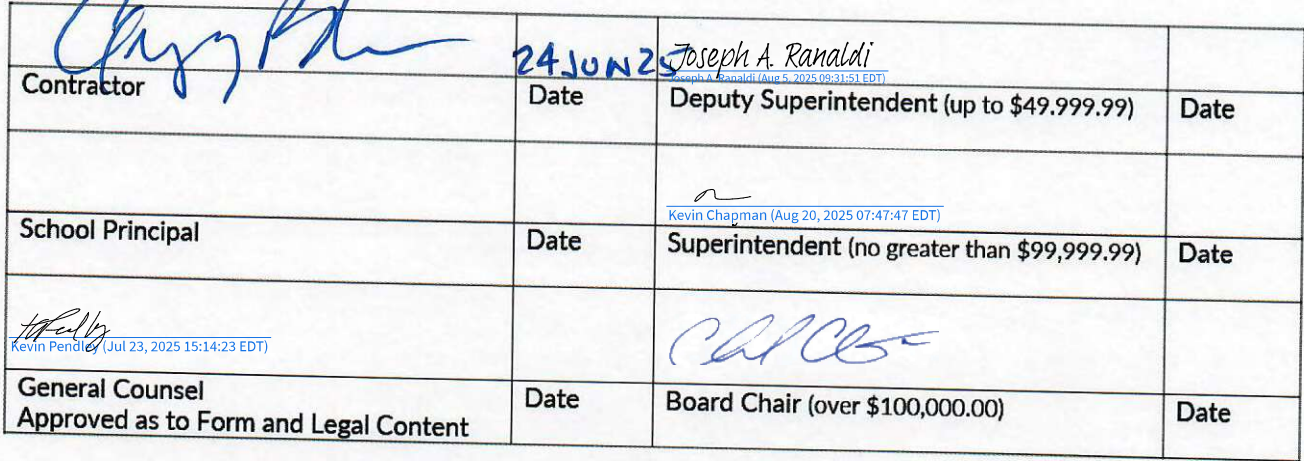 24 JUN 25
Joseph A. Ranaldi
Joseph A. Ranaldi (Aug 5, 2025 09:31:51 EDT)
Contractor
Date
Deputy Superintendent (up to $49.999.99)
Date
Kevin Chapman (Aug 20, 2025 07:47:47 EDT)
School Principal
Date
Superintendent (no greater than $99,999.99)
Date
Kevin Pendley (Jul 23, 2025 15:14:23 EDT)
General Counsel
Approved as to Form and Legal Content
Date
Board Chair (over $100,000.00)
Date